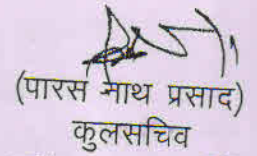 (पारस नाथ प्रसाद)
कुलसचिव